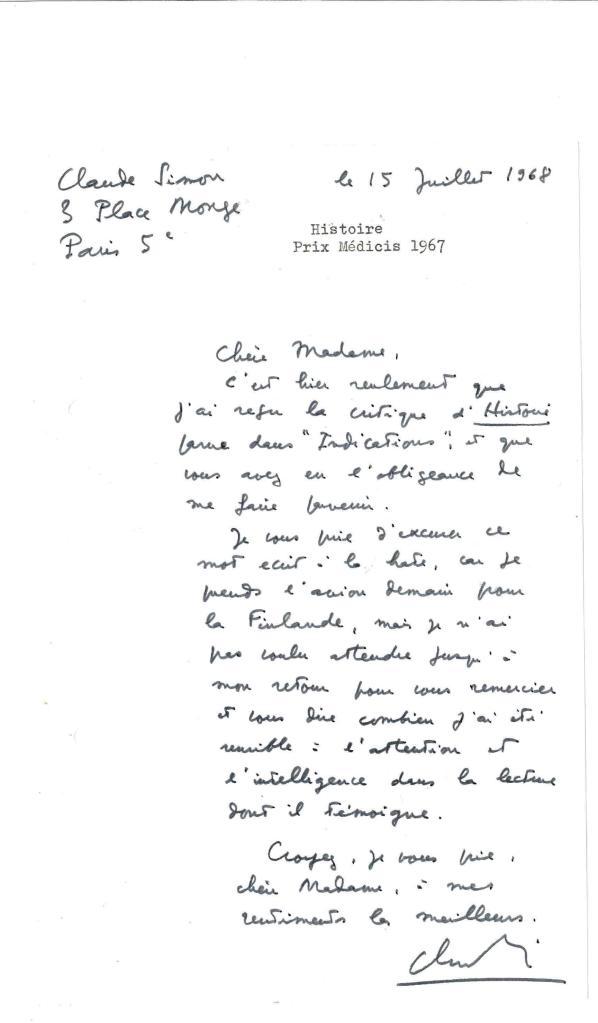 Claude Simon
3 Place Monge
Paris 5e
le 15 Juillet 1968
Histoire
Prix Médicis 1967
Chère Madame,
C'est hier seulement que
j'ai reçu la critique d'Histoire
parue dans "Indications", et que
vous avez eu l'obligeance de
me faire parvenir.
Je vous prie d'excuser ce
mot écrit à la hâte, car je
prends l'avion demain pour
la Finlande, mais je n'ai
pas voulu attendre jusqu'à
mon retour pour vous remercier
et vous dire combien j'ai été
sensible à l'attention et
l'intelligence dans la lecture
dont il témoigne.
Croyez, je vous prie,
chère Madame, à mes
sentiments les meilleurs.